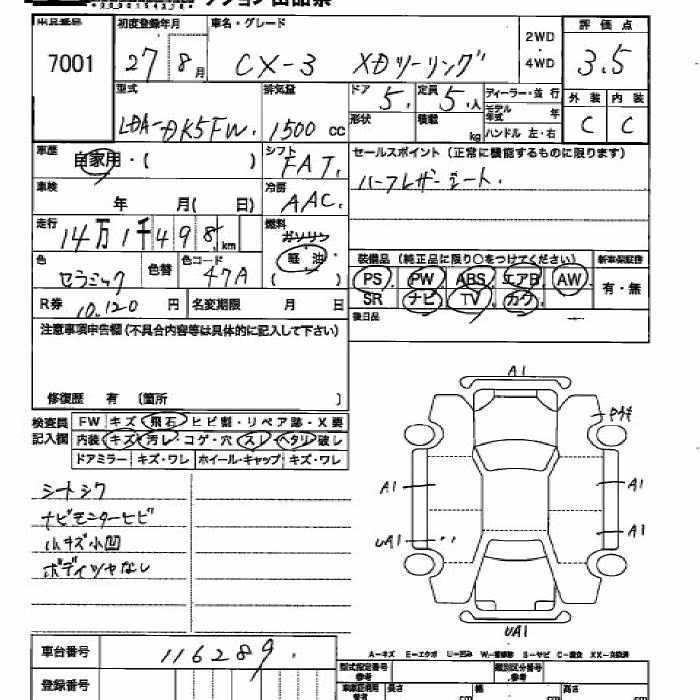 出品番号 初度登録年月 車名・グレード 評価点
7001 27 8月 CX-3 XDツーリング 2WD・4WD 3.5
型式 排気量 ドア 5. 定員 5.人 ディーラー・並行 外装 内装
LDA-DK5FW. 1500 cc 形状 積載 kg モデル年式 年 ハンドル 左・右 C C
車歴 自家用・( ) シフト FAT. セールスポイント(正常に機能するものに限ります)
車検 年 月( 日) 冷房 AAC. ハーフレザーシート.
走行 14万1千498.km 燃料 ガソリン 軽油 ( )
色 セラミック 色替 色コード 47A
装備品(純正品に限り○をつけてください) 新車保証書
PS PW ABS エアB AW 有・無
SR ナビ TV カワ
R券 10.120 円 名変期限 月 日
後日品
注意事項申告欄(不具合内容等は具体的に記入して下さい)
修復歴 有 (箇所 )
検査員記入欄 FW キズ・飛石・ヒビ割・リペア跡・X要
内装 キズ・汚レ・コゲ・穴・スレ・ヘタリ・破レ
ドアミラー キズ・ワレ ホイール・キャップ キズ・ワレ
シートシワ
ナビモニターヒビ
小キズ小凹
ボディツヤなし
A1
A1 A1
UA1 A1
UA1
車台番号 116289.
A-キズ E-エクボ U-凹み W-補修跡 S-サビ C-腐食 XX-交換済
型式指定番号 参考 類別区分番号 参考
登録番号 長さ cm 幅 cm 高さ cm